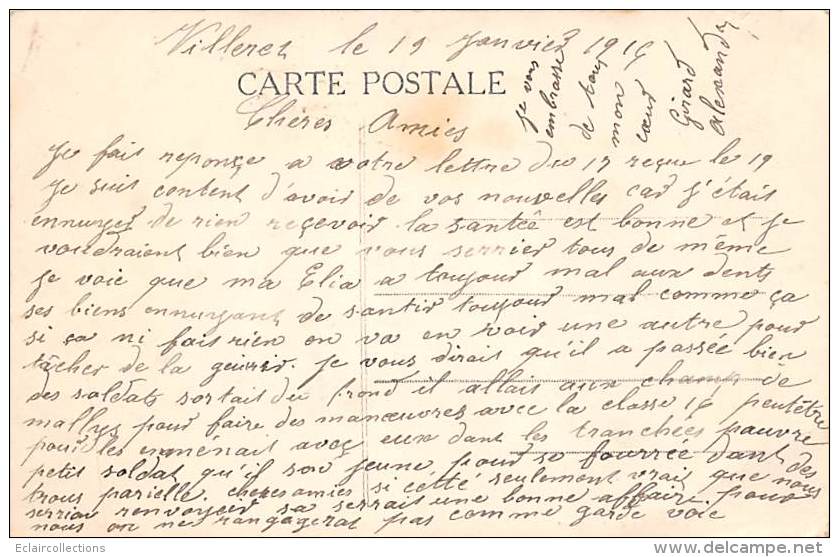 Villeret le 19 Janvier 1916
CARTE POSTALE
Chères Amies
Je fait reponse a votre lettre du 17 reçue le 19
Je suit content d'avoir de vos nouvelles car j'étais
ennuyer de rien reçevoir la santée est bonne et je
voudraient bien que vous serrier tous de même
Je voie que ma Elia a toujour mal aux dents
ses biens ennuyant de santir toujour mal comme ça
si ça ni fait rien on va en voir une autre pour
tâcher de la geurir. Je vous dirait qu'il a passée bien
des soldats sortait du frond il allais aux champ de
mallys pour faire des manœuvres avec la classe 16 peutêtre
pour les emménait avec eux dant les tranchées pauvre
petit soldat qu'il son jeune pour se fourrée dant des
trous parielle. cheres amies si cetté seulement vrait que nous
serrion renvoyer sa serrait une bonne affaire. pour
nous on ne rangagerat pas comme garde voie
Je vous
embrasse
de tous
mon
cœur
Girard
Alexandre
Eclaircollections
http://www.delcampe.net